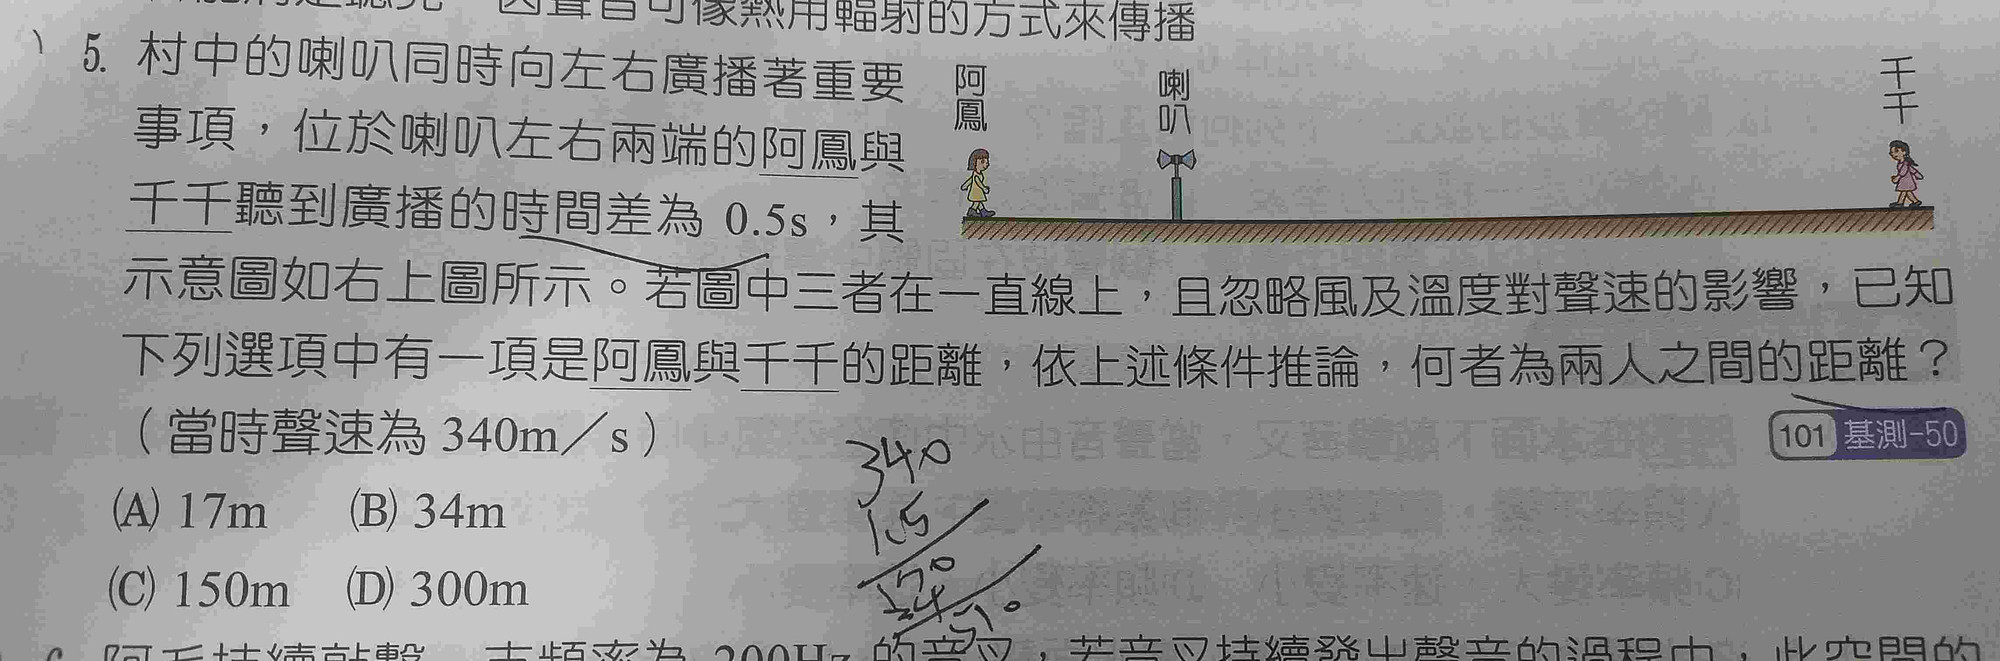 因聲音可像熱用輻射的方式來傳播
5. 村中的喇叭同時向左右廣播著重要
事項，位於喇叭左右兩端的阿鳳與
千千聽到廣播的時間差為 0.5s，其
阿鳳
喇叭
千千
示意圖如右上圖所示。若圖中三者在一直線上，且忽略風及溫度對聲速的影響，已知
下列選項中有一項是阿鳳與千千的距離，依上述條件推論，何者為兩人之間的距離？
（當時聲速為 340m／s）
101 基測-50
(A) 17m (B) 34m
(C) 150m (D) 300m
340
1.5
170
340
510
6. 阿毛持續敲擊一支頻率為 200Hz 的音叉，若音叉持續發出聲音的過程中，此空間的